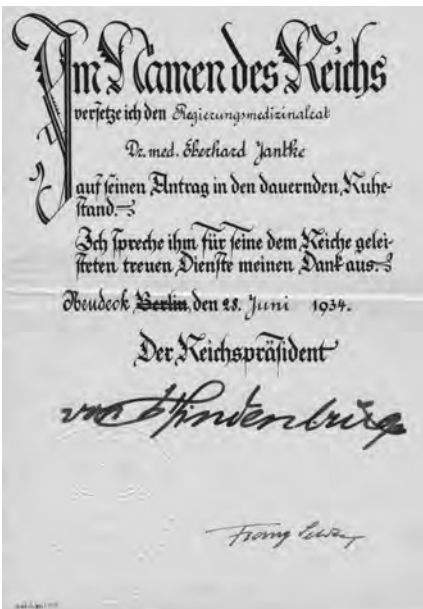 Im Namen des Reichs
versetze ich den Regierungsmedizinalrat
Dr. med. Eberhard Jantke
auf seinen Antrag in den dauernden Ruhe-
stand.
Ich spreche ihm für seine dem Reiche gelei-
steten treuen Dienste meinen Dank aus.
Neudeck Berlin, den 28. Juni 1934.
Der Reichspräsident
von Hindenburg
Franz